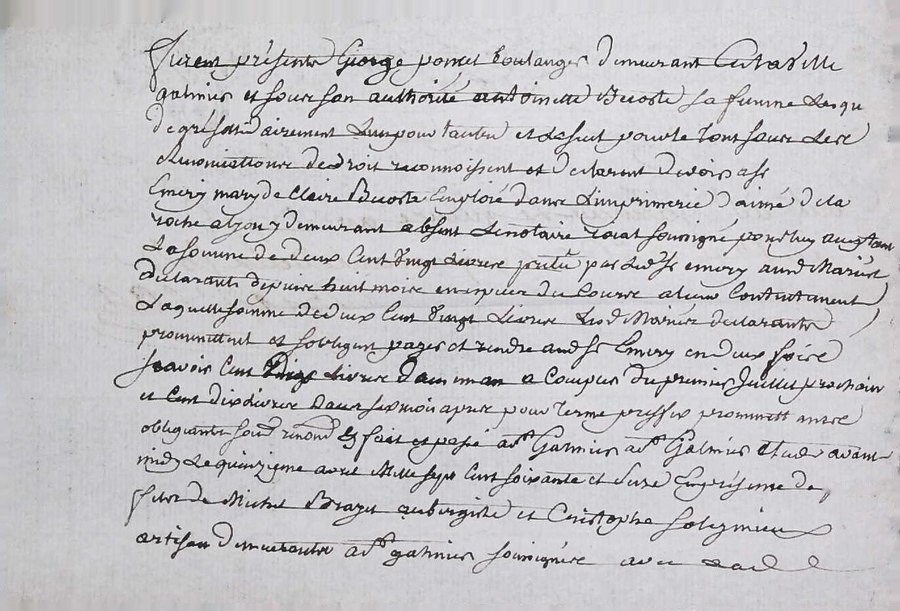 Furent présents George poncet boulanger demeurant en la ville
galmier et sous son authorité antoinette Decoste sa femme Lesqu
de gré solidairement Lun pour lautre et Lesuel pour le tout sous Les re
nonciations de droit reconnoissent et declarent devoir a sr
Emery mary de Claire Decoste Employé dans L'imprimerie d'aimé dela
roche a Lyon y demeurant absent Le notaire roial soussigné pour luy acceptant
La somme de deux Cent vingt Livres pretée par Led sr emery aux d Mariés
declarants depuis huit mois en especes du Cours a leur Contentement
Laquelle somme de deux Cent vingt Livres Les d Mariés declarants
promettent et sobligent payer et rendre aud sr Emery en deux foire
scavoir Cent dix Livres dans un an a Compter du premier Juillet prochain
et Cent dix Livres dans six mois apres pour terme prefix promettt
obligeants soud renond fait et passé a st Galmier a st Galmier Etude avant
midy Le quinzieme avril Mille sept Cent soixante et seize En présence de
sieur de Michel aubergiste et Cristophe
artisan demeurants a st galmier soussignés avec